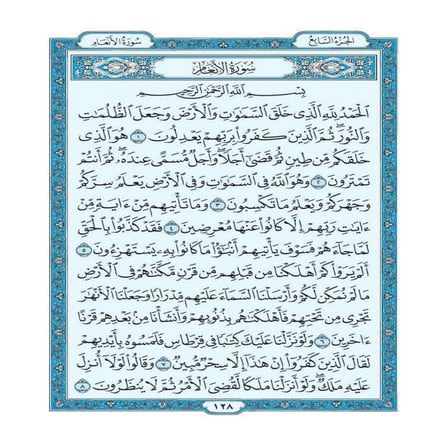 الجزء السابع
سورة الأنعام
سورة الأنعام
بسم الله الرحمن الرحيم
الحمد لله الذي خلق السموات والأرض وجعل الظلمات
والنور ثم الذين كفروا بربهم يعدلون ١ هو الذي
خلقكم من طين ثم قضى أجلا وأجل مسمى عنده ثم أنتم
تمترون ٢ وهو الله في السموات وفي الأرض يعلم سركم
وجهركم ويعلم ما تكسبون ٣ وما تأتيهم من ءاية من
ءايات ربهم إلا كانوا عنها معرضين ٤ فقد كذبوا بالحق
لما جاءهم فسوف يأتيهم أنبؤا ما كانوا به يستهزءون ٥
ألم يروا كم أهلكنا من قبلهم من قرن مكناهم في الأرض
ما لم نمكن لكم وأرسلنا السماء عليهم مدرارا وجعلنا الأنهار
تجري من تحتهم فأهلكناهم بذنوبهم وأنشأنا من بعدهم قرنا
ءاخرين ٦ ولو نزلنا عليك كتابا في قرطاس فلمسوه بأيديهم
لقال الذين كفروا إن هذا إلا سحر مبين ٧ وقالوا لولا أنزل
عليه ملك ولو أنزلنا ملكا لقضي الأمر ثم لا ينظرون ٨
١٢٨